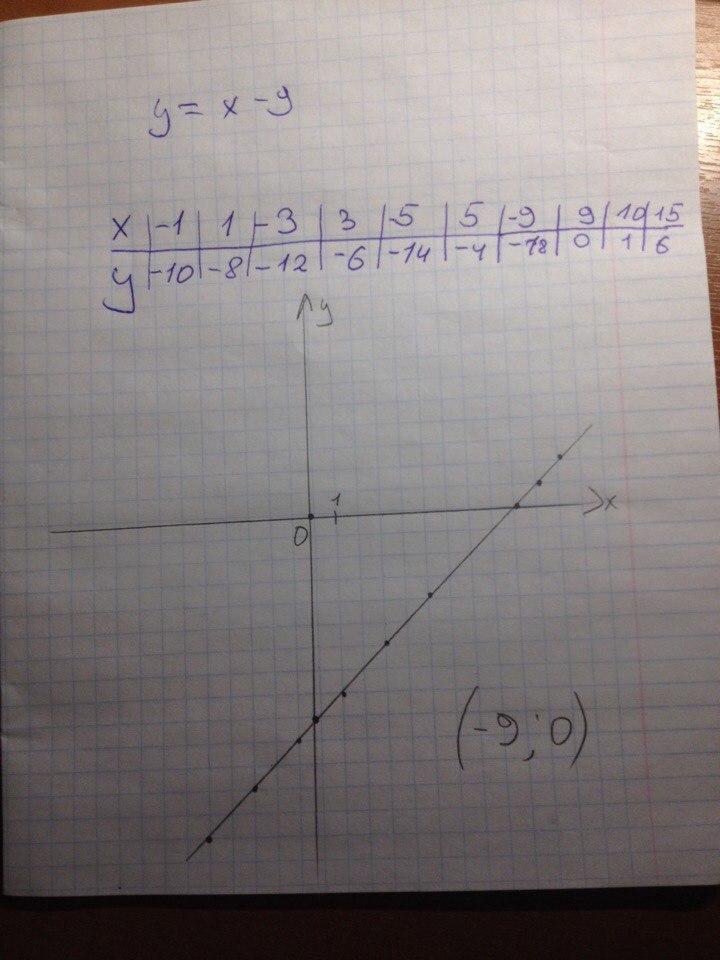 y = x - 9
x | -1 | 1 | -3 | 3 | -5 | 5 | -9 | 9 | 10 | 15
y | -10 | -8 | -12 | -6 | -14 | -4 | -18 | 0 | 1 | 6
y
1
x
0
(-9; 0)